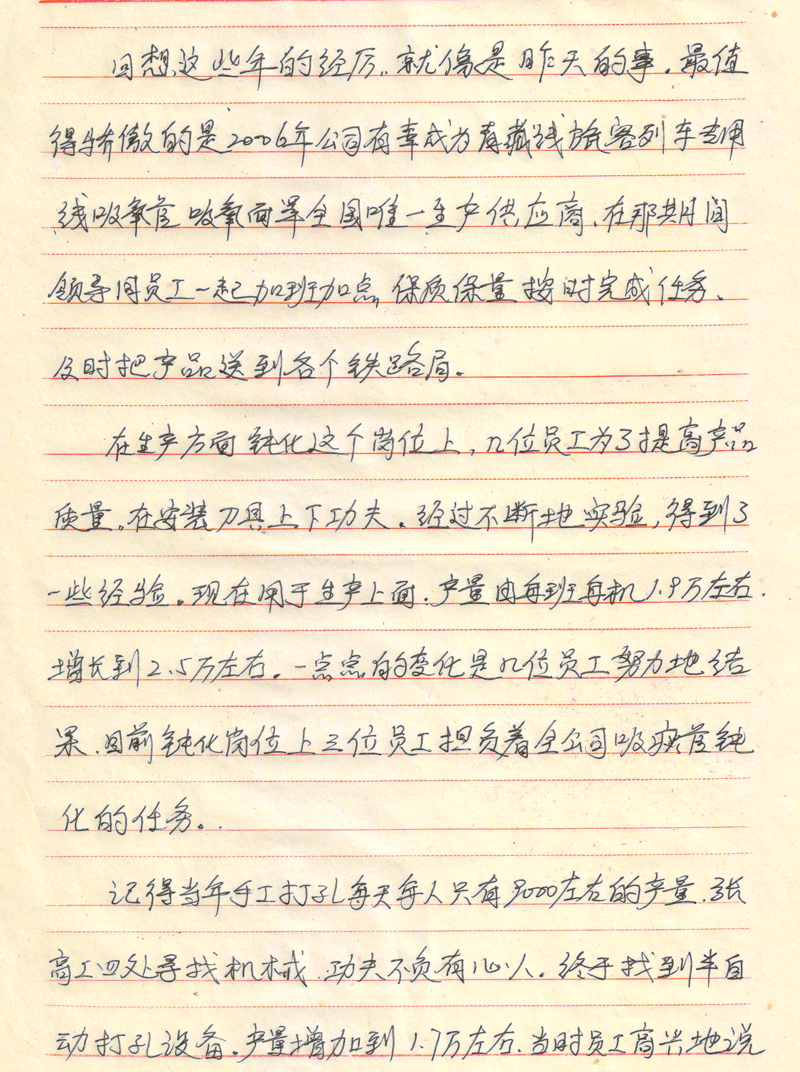 回想这些年的经历，就像是昨天的事。最值
得骄傲的是2006年公司有幸成为青藏线旅客列车专用
线吸氧管 吸氧面罩全国唯一生产供应商、在那期间
领导同员工一起加班加点，保质保量按时完成任务、
及时把产品送到各个铁路局。
在生产方面 钝化这个岗位上，几位员工为了提高产品
质量。在安装刀具上下功夫。经过不断地实验，得到了
一些经验。现在用于生产上面．产量由每班每机1.9万左右．
增长到2.5万左右。一点点的变化是几位员工努力地结
果．目前钝化岗位上三位员工担负着全公司吸痰管钝
化的任务。
记得当年手工打孔每天每人只有9000左右的产量．张
高工四处寻找机械．功夫不负有心人。终于找到半自
动打孔设备．产量增加到1.7万左右．当时员工高兴地说